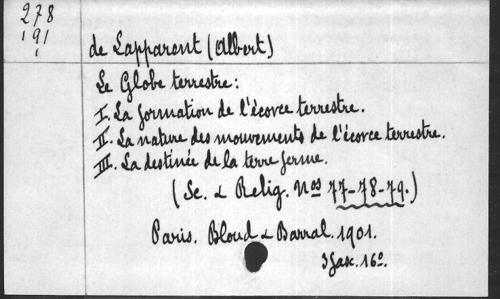 278
191
1
de Lapparent (Albert)
Le Globe terrestre:
I. La formation de l'écorce terrestre.
II. La nature des mouvements de l'écorce terrestre.
III. La destinée de la terre ferme.
(Sc. & Relig. Nos 77-78-79.)
Paris. Bloud & Barral. 1901.
3 fasc. 16º.